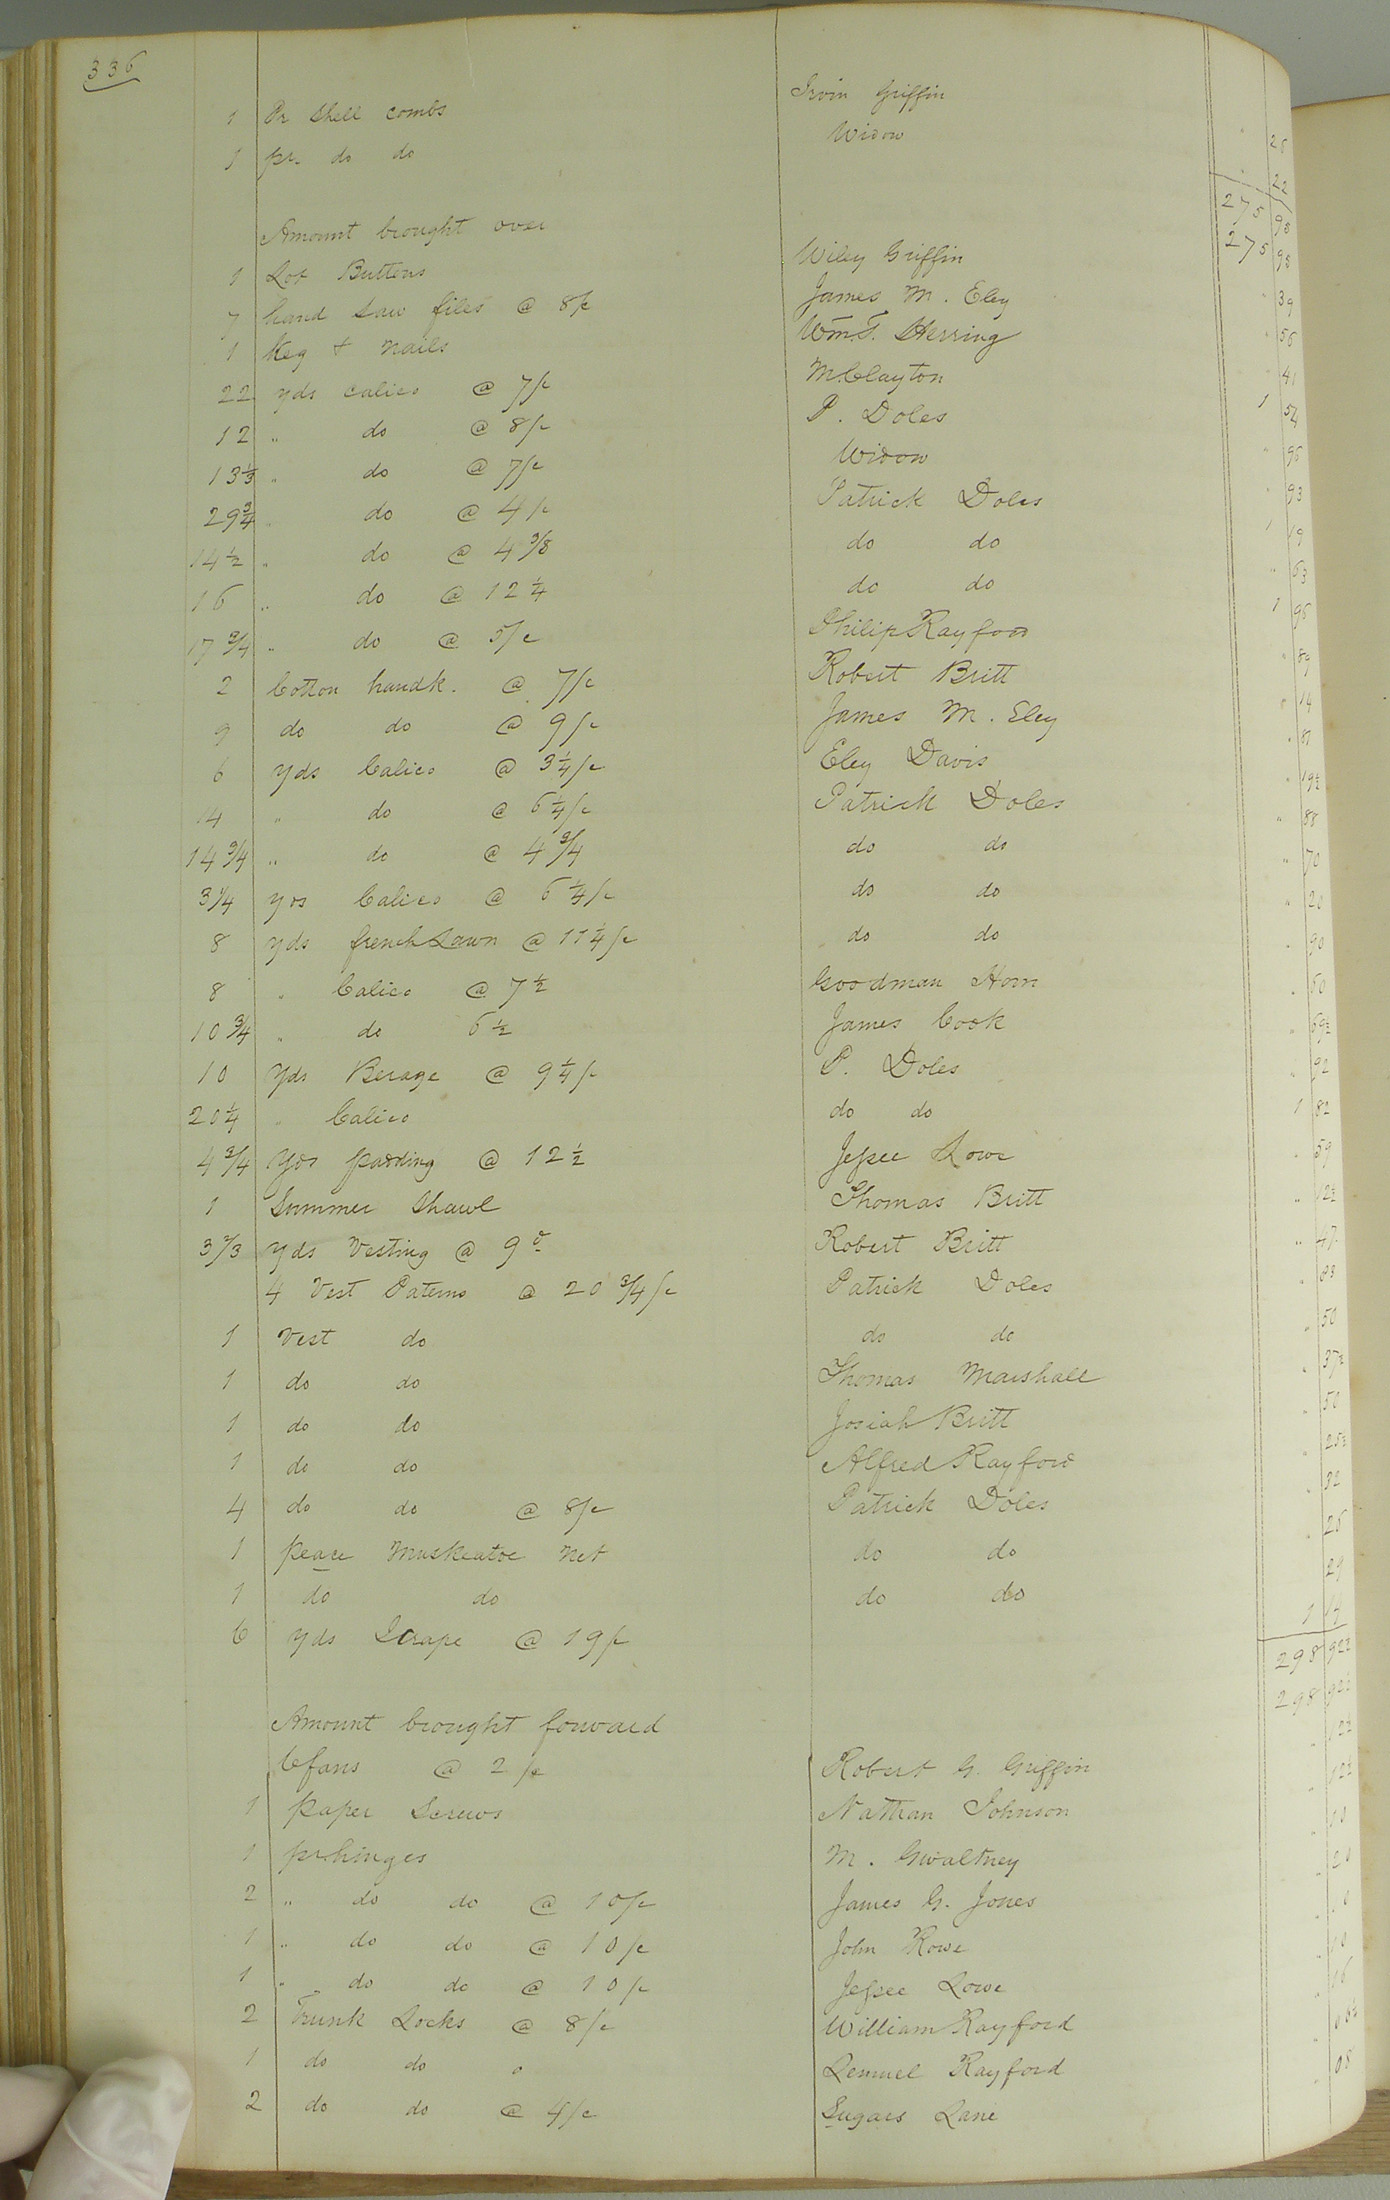 336
1 Pr Shell combs Irvin Griffin 25
1 pr. do do Widow 22
275 98
Amount brought over 275 98
1 Lot Buttons Wiley Griffin " 39
7 hand saw files @ 8/c James M. Eley " 56
1 Keg & nails Wm. T. Herring " 41
22 yds calico @ 7/c M. Clayton 1 54
12 " do @ 8/c P. Doles " 96
13 1/3 " do @ 7/c Widow " 93
29 3/4 " do @ 4/c Patrick Doles 1 19
14 1/2 " do @ 4 3/8 do do " 63
16 " do @ 12 1/4 do do 1 96
17 3/4 " do @ 5/c Philip Rayford " 89
2 Cotton handk. @ 7/c Robert Britt " 14
9 do do @ 9/c James M. Eley " 81
6 yds Calico @ 3 1/4/c Eley Davis " 19 1/2
14 " do @ 6 1/4/c Patrick Doles " 88
14 3/4 " do @ 4 3/4 do do " 70
3 1/4 yds Calico @ 6 1/4/c do do " 20
8 yds french Lawn @ 11 1/4/c do do " 90
8 " Calico @ 7 1/2 Goodman Horn " 60
10 3/4 " do 6 1/2 James Cook " 69 1/2
10 Yds Berage @ 9 1/4/c P. Doles " 92
20 1/4 " Calico do do 1 82
4 3/4 Yds padding @ 12 1/2 Jessee Lowe " 59
1 Summer Shawl Thomas Britt " 12 1/2
3 2/3 yds Vesting @ 9 Robert Britt " 47
4 Vest Paterns @ 20 3/4/c Patrick Doles " 83
1 Vest do do do " 50
1 do do Thomas Marshall " 37 1/2
1 do do Josiah Britt " 50
1 do do Alfred Rayford " 25 1/2
4 do do @ 8/c Patrick Doles " 32
1 peace Muskeatoe net do do " 25
1 do do do do 29
6 yds Scrape @ 19/c 1 14
298 92 1/2
Amount brought forward 298 92 1/2
6 fans @ 2/c Robert G. Griffin " 12 1/2
1 paper Screws Nathan Johnson " 12 1/2
1 pr. hinges M. Gwaltney " 10
2 " do do @ 10/c James G. Jones " 20
1 " do do @ 10/c John Rowe
1 " do do @ 10/c Jessee Lowe " 10
2 Trunk Locks @ 8/c William Rayford " 16
1 do do Lemuel Rayford " 06 1/4
2 do do @ 4/c Sugars Lane " 08